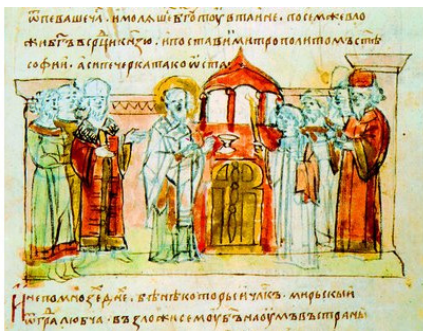 ѿпевашеча. имолѧше бг҃оту втаине. посемжевло
жибг҃ъ въ срц҃и кнѧзю. ипоставимитрополитомъ стѣ
софии. асипечеркатакоѡста
инепомноѕедне. бѣнѣкоторыи чл҃къ. мирьскыи
ѿгра любча. възложисемоу бъ наоумъвъстраны